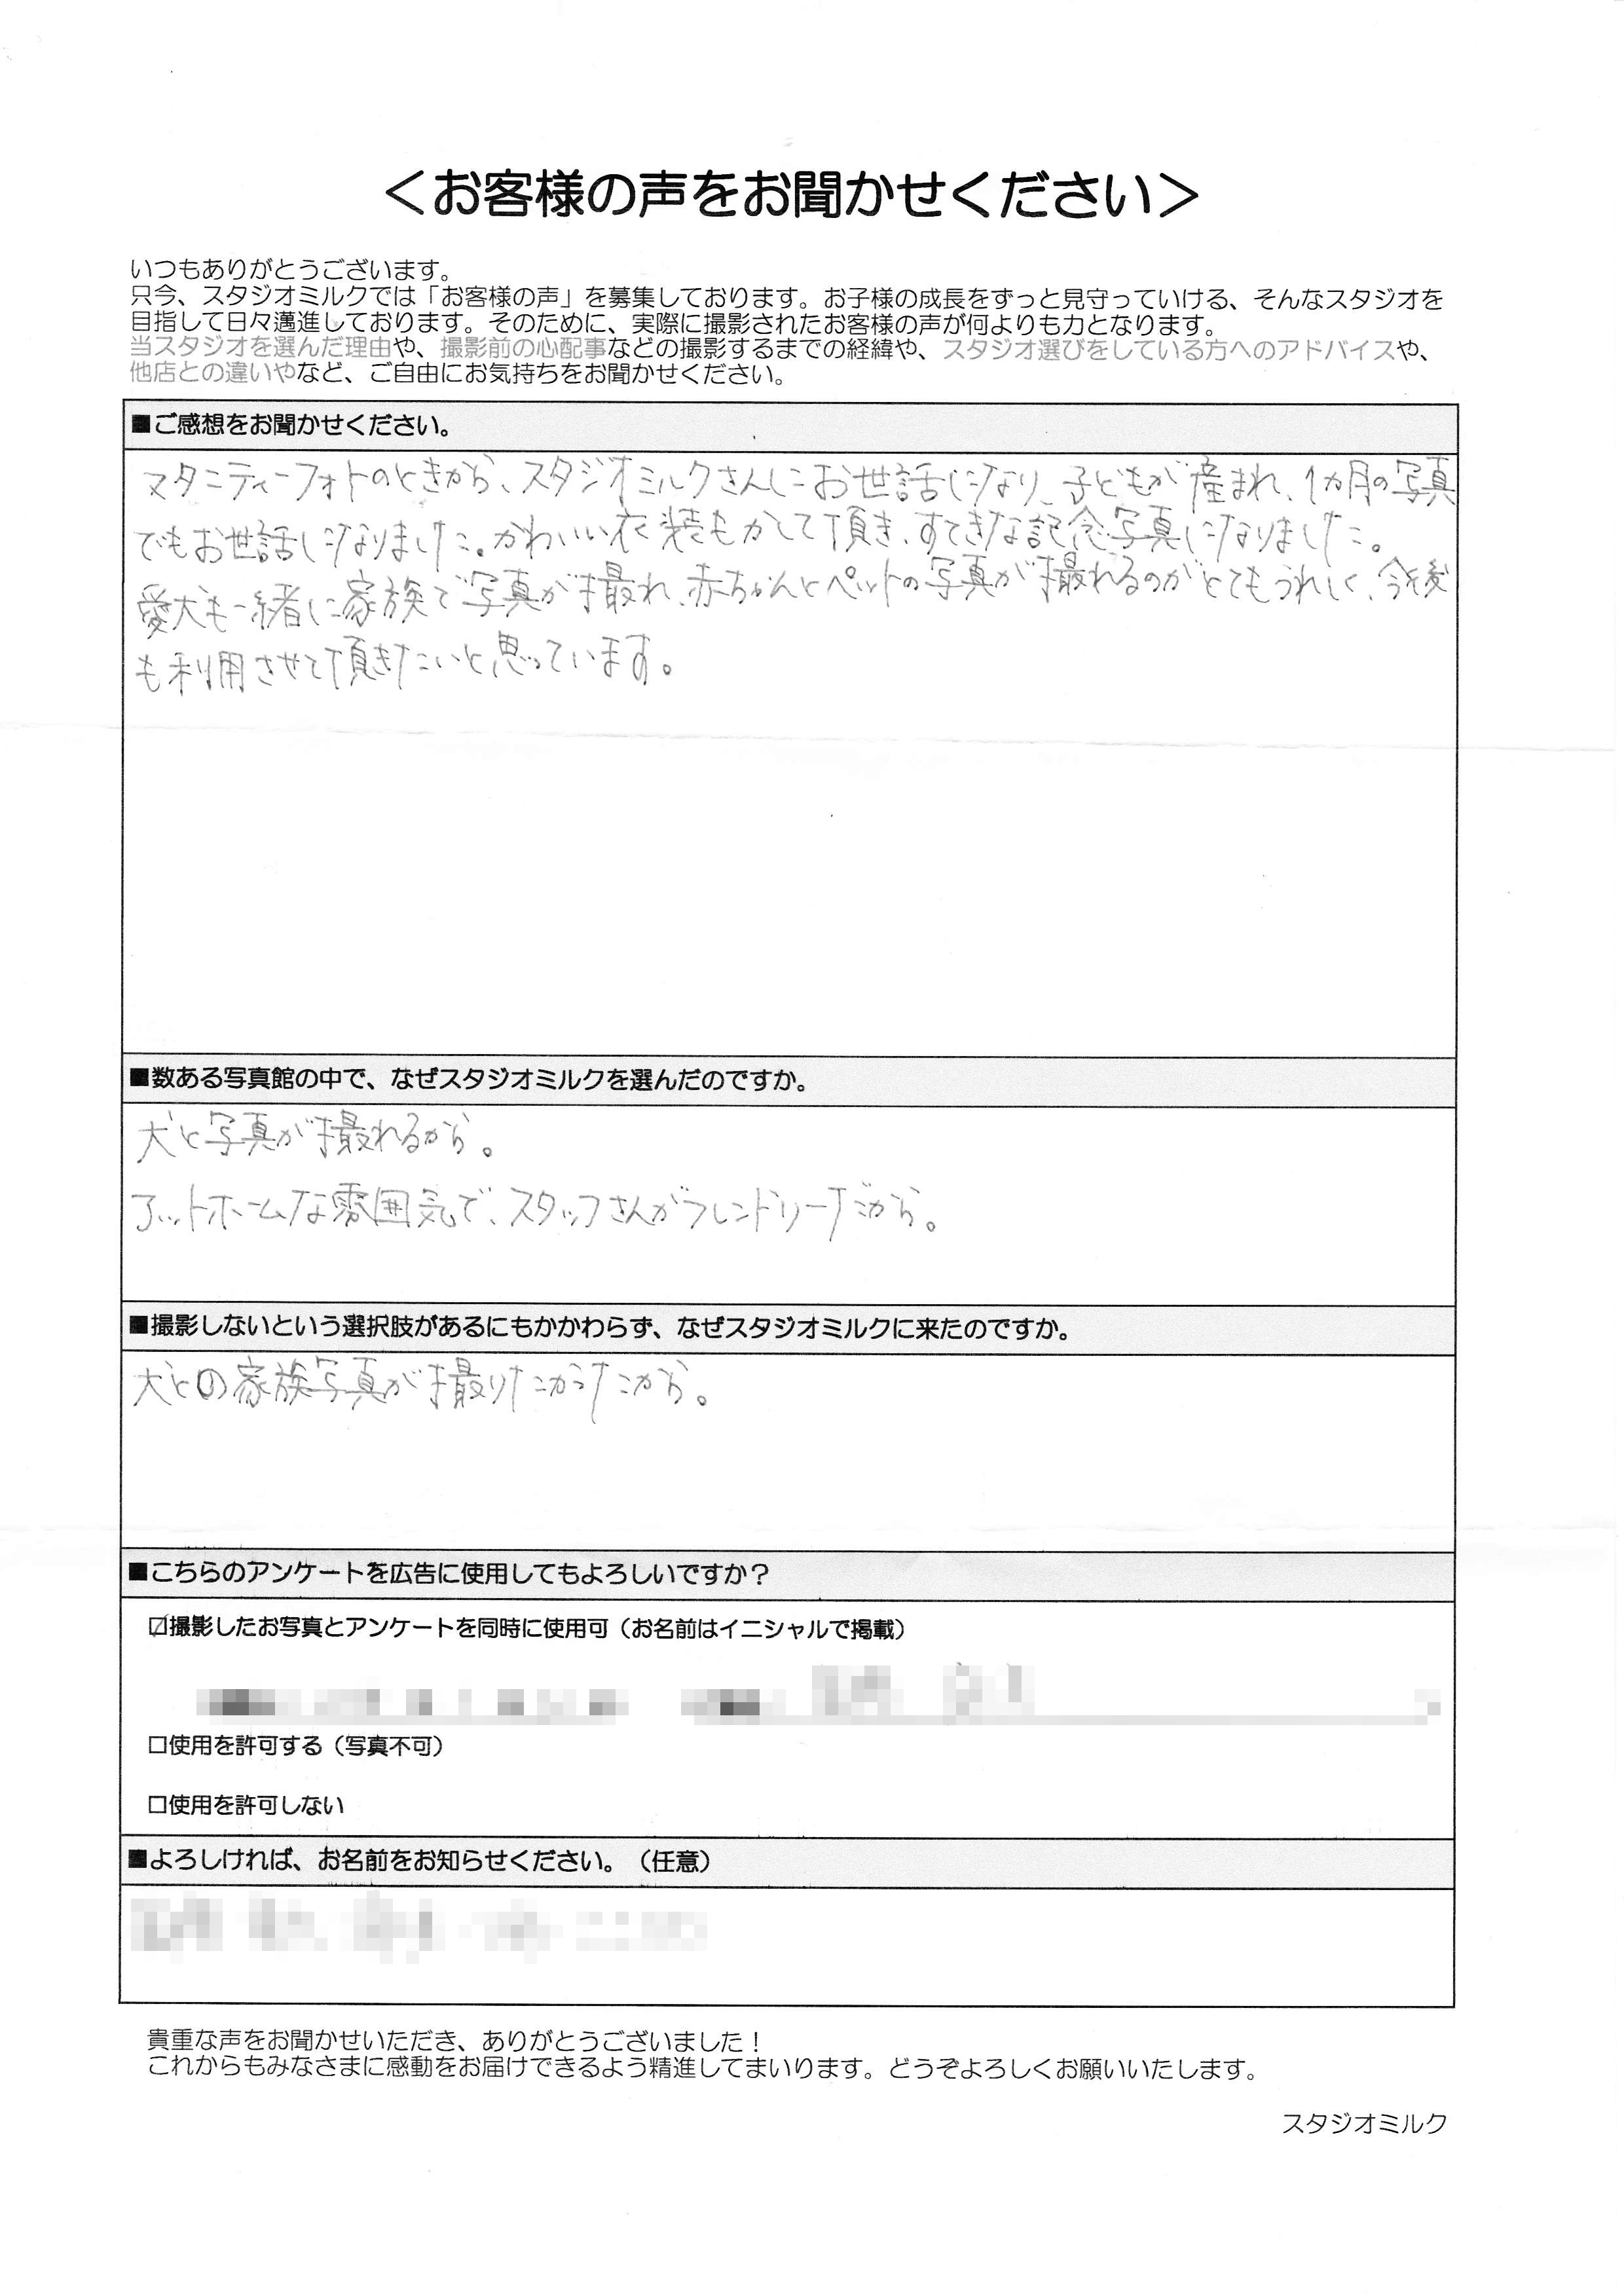 ＜お客様の声をお聞かせください＞
いつもありがとうございます。
只今、スタジオミルクでは「お客様の声」を募集しております。お子様の成長をずっと見守っていける、そんなスタジオを
目指して日々邁進しております。そのために、実際に撮影されたお客様の声が何よりも力となります。
当スタジオを選んだ理由や、撮影前の心配事などの撮影するまでの経緯や、スタジオ選びをしている方へのアドバイスや、
他店との違いやなど、ご自由にお気持ちをお聞かせください。
■ご感想をお聞かせください。
マタニティーフォトのときから、スタジオミルクさんにお世話になり、子どもが産まれ、1カ月の写真
でもお世話になりました。かわいい衣装もかして頂き、すてきな記念写真になりました。
愛犬も一緒に家族で写真が撮れ、赤ちゃんとペットの写真が撮れるのがとてもうれしく、今後
も利用させて頂きたいと思っています。
■数ある写真館の中で、なぜスタジオミルクを選んだのですか。
犬と写真が撮れるから。
アットホームな雰囲気で、スタッフさんがフレンドリーだから。
■撮影しないという選択肢があるにもかかわらず、なぜスタジオミルクに来たのですか。
犬との家族写真が撮りたかったから。
■こちらのアンケートを広告に使用してもよろしいですか？
☑撮影したお写真とアンケートを同時に使用可（お名前はイニシャルで掲載）
□使用を許可する（写真不可）
□使用を許可しない
■よろしければ、お名前をお知らせください。（任意）
貴重な声をお聞かせいただき、ありがとうございました！
これからもみなさまに感動をお届けできるよう精進してまいります。どうぞよろしくお願いいたします。
スタジオミルク